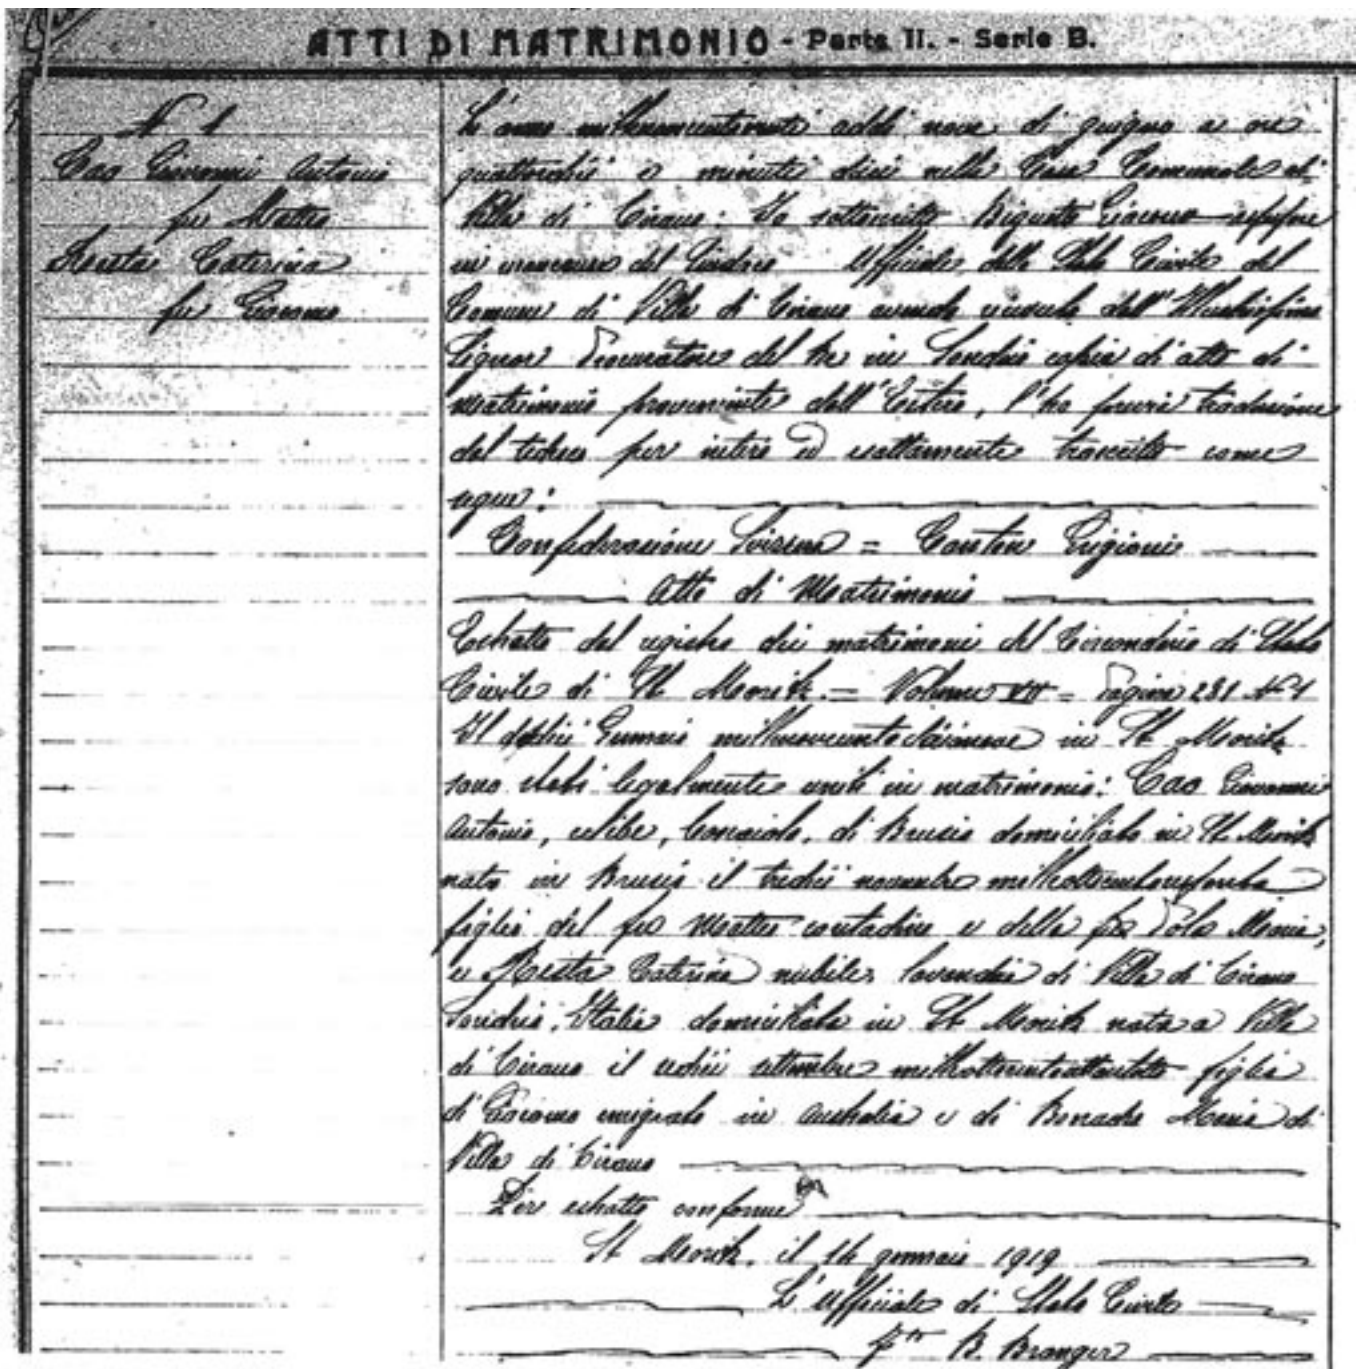 ATTI DI MATRIMONIO - Parte II. - Serie B.
N 1
Cao Giovanni Antonio
fu Matteo
Resta Caterina
fu Giacomo
L'anno millenovecentoventi addì nove di giugno a ore
quattordici e minuti dieci nella Casa Comunale di
Villa di Tirano. Io sottoscritto Giacomo assessore
in mancanza del Sindaco Ufficiale dello Stato Civile del
Comune di Villa di Tirano avendo ricevuto dall'Illustrissimo
Signor Procuratore del Re in Sondrio copia di atto di
Matrimonio proveniente dall'Estero, l'ho traduzione
del tedesco per intero ed esattamente trascritto come
segue:
Confederazione Svizzera = Canton Grigioni
Atto di Matrimonio
Estratto dal registro dei matrimoni del Circondario di Stato
Civile di St Moritz. = Volume VII = Pagina 281 N° 1
Il Gennaio millenovecentodiciannove in St Moritz
sono stati legalmente uniti in matrimonio: Cao Giovanni
Antonio, celibe, di Brusio domiciliato in St Moritz
nato in Brusio il tredici novembre
figlio del fu Matteo contadino e della fu Pola Maria,
e Resta Caterina nubile, lavandaia di Villa di Tirano
Sondrio, Italia domiciliata in St Moritz nata a Villa
di Tirano il sedici settembre figlia
di Giacomo emigrato in Australia e di Maria di
Villa di Tirano
Per estratto conforme
St Moritz, il 14 gennaio 1919
L'Ufficiale di Stato Civile
fto B. Branger